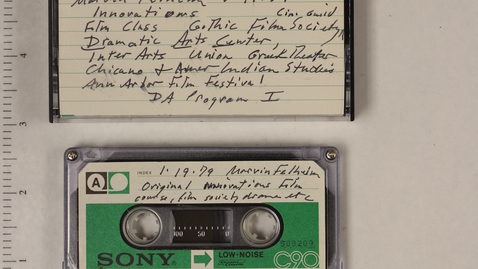 Innovations Cin. Guild
Film Class Gothic Film Society
Dramatic Arts Center,
Inter Arts Union Greek Theater
Chicano & Amer Indian Studies
Ann Arbor Film Festival
DA Program I
4
3
2
1
A
INDEX 1.19.79 Marvin Felheim
Original innovations Film
course, film society, drama etc
100 50 0
SONY
LOW-NOISE
C90